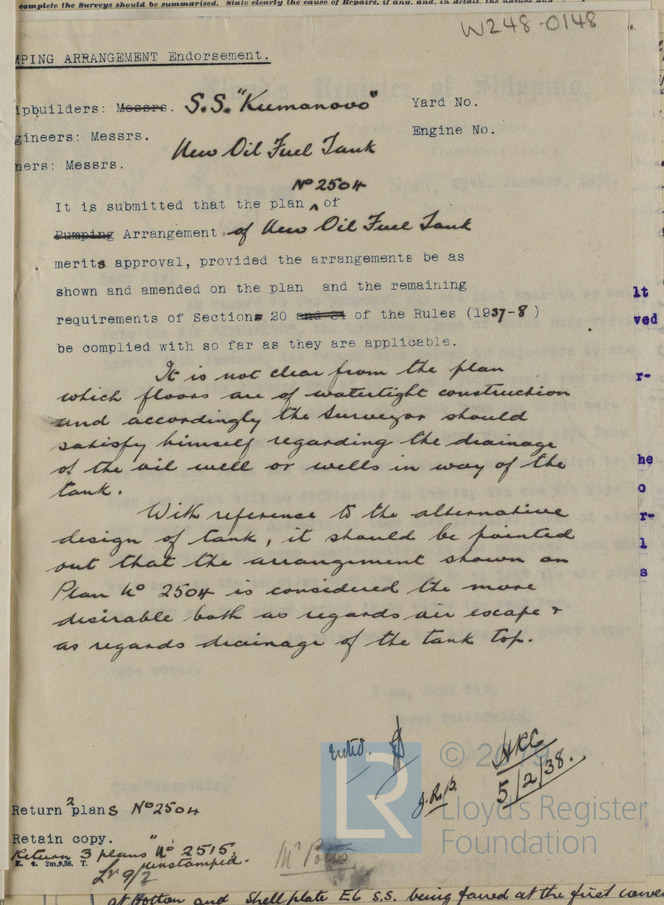 complete the Surveys should be summarised. State clearly the cause of Repairs, if any, and, in detail, the nature and
W248-0148
MPING ARRANGEMENT Endorsement.
ipbuilders: Messrs. S.S. "Kumanovo" Yard No.
gineers: Messrs. Engine No.
New Oil Fuel Tank
ners: Messrs.
Nº 2504
It is submitted that the plan ^ of
Pumping Arrangement of New Oil Fuel Tank
merits approval, provided the arrangements be as
shown and amended on the plan and the remaining
requirements of Sections 20 and 34 of the Rules (1937-8)
be complied with so far as they are applicable.
It is not clear from the plan
which floors are of watertight construction
and accordingly the Surveyor should
satisfy himself regarding the drainage
of the oil well or wells in way of the
tank.
With reference to the alternative
design of tank, it should be pointed
out that the arrangement shown on
Plan Nº 2504 is considered the more
desirable both as regards air escape &
as regards drainage of the tank top.
lt
ved
r-
he
o
r-
l
s
HKC
5/2/38.
J.R.B.
© 20
Lloyd's Register
Foundation
LR
Return 2 plans Nº 2504
Retain copy.
Return 3 plans Nº 2515
unstamped.
E. 4. 2m,9,36. T.
Lr 9/2
at Bottom and Shell plate E6 S.S. being faired at the first conve